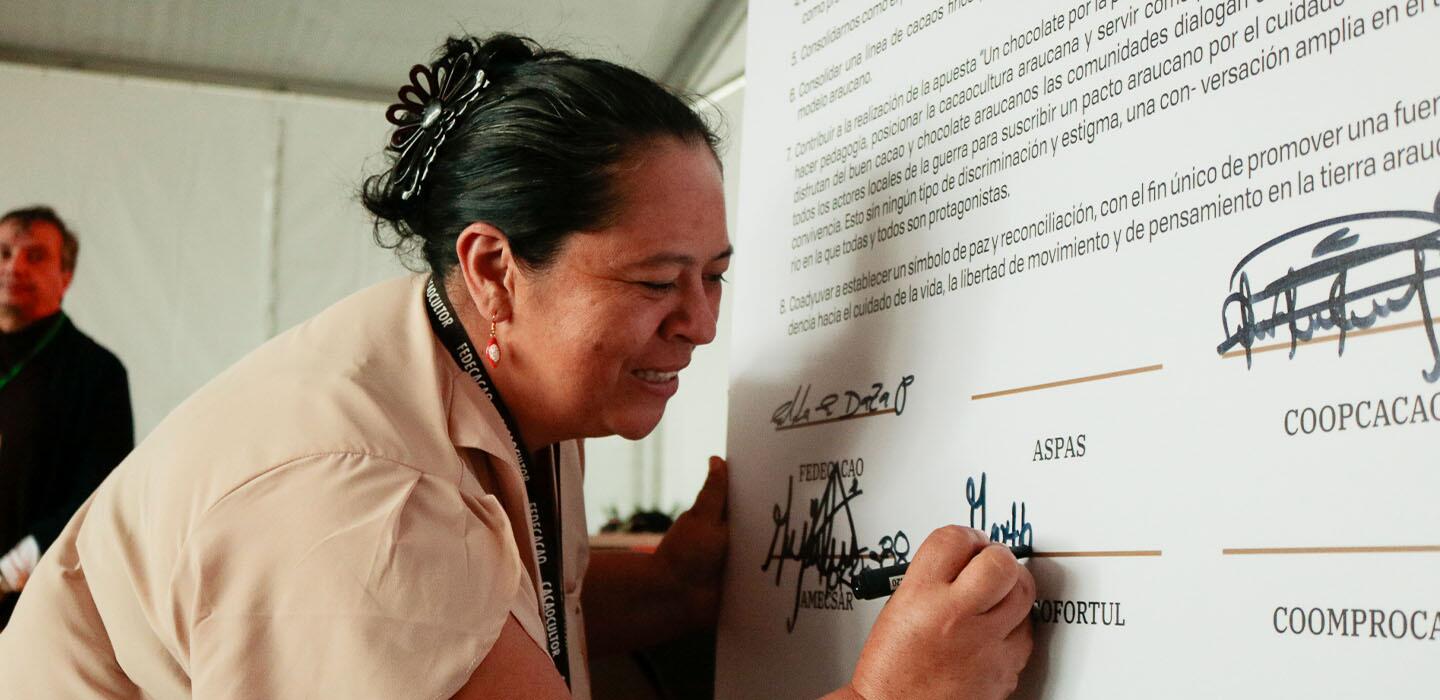 como
5. Consolidarnos como
6. Consolidar una línea de cacaos finos
modelo araucano.
7. Contribuir a la realización de la apuesta "Un chocolate por la
hacer pedagogía, posicionar la cacaocultura araucana y servir como
disfrutan del buen cacao y chocolate araucanos las comunidades dialogan
todos los actores locales de la guerra para suscribir un pacto araucano por el cuidado
convivencia. Esto sin ningún tipo de discriminación y estigma, una con- versación amplia en el
rio en la que todas y todos son protagonistas.
8. Coadyuvar a establecer un símbolo de paz y reconciliación, con el fin único de promover una fuer
dencia hacia el cuidado de la vida, la libertad de movimiento y de pensamiento en la tierra arauc
Daza P
FEDECACAO
ASPAS
COOPCACAO
Marth
AMECSAR
COFORTUL
COOMPROCA
CACAOCULTOR
FEDECACAO
FEDECACAO
CACAOCULTOR